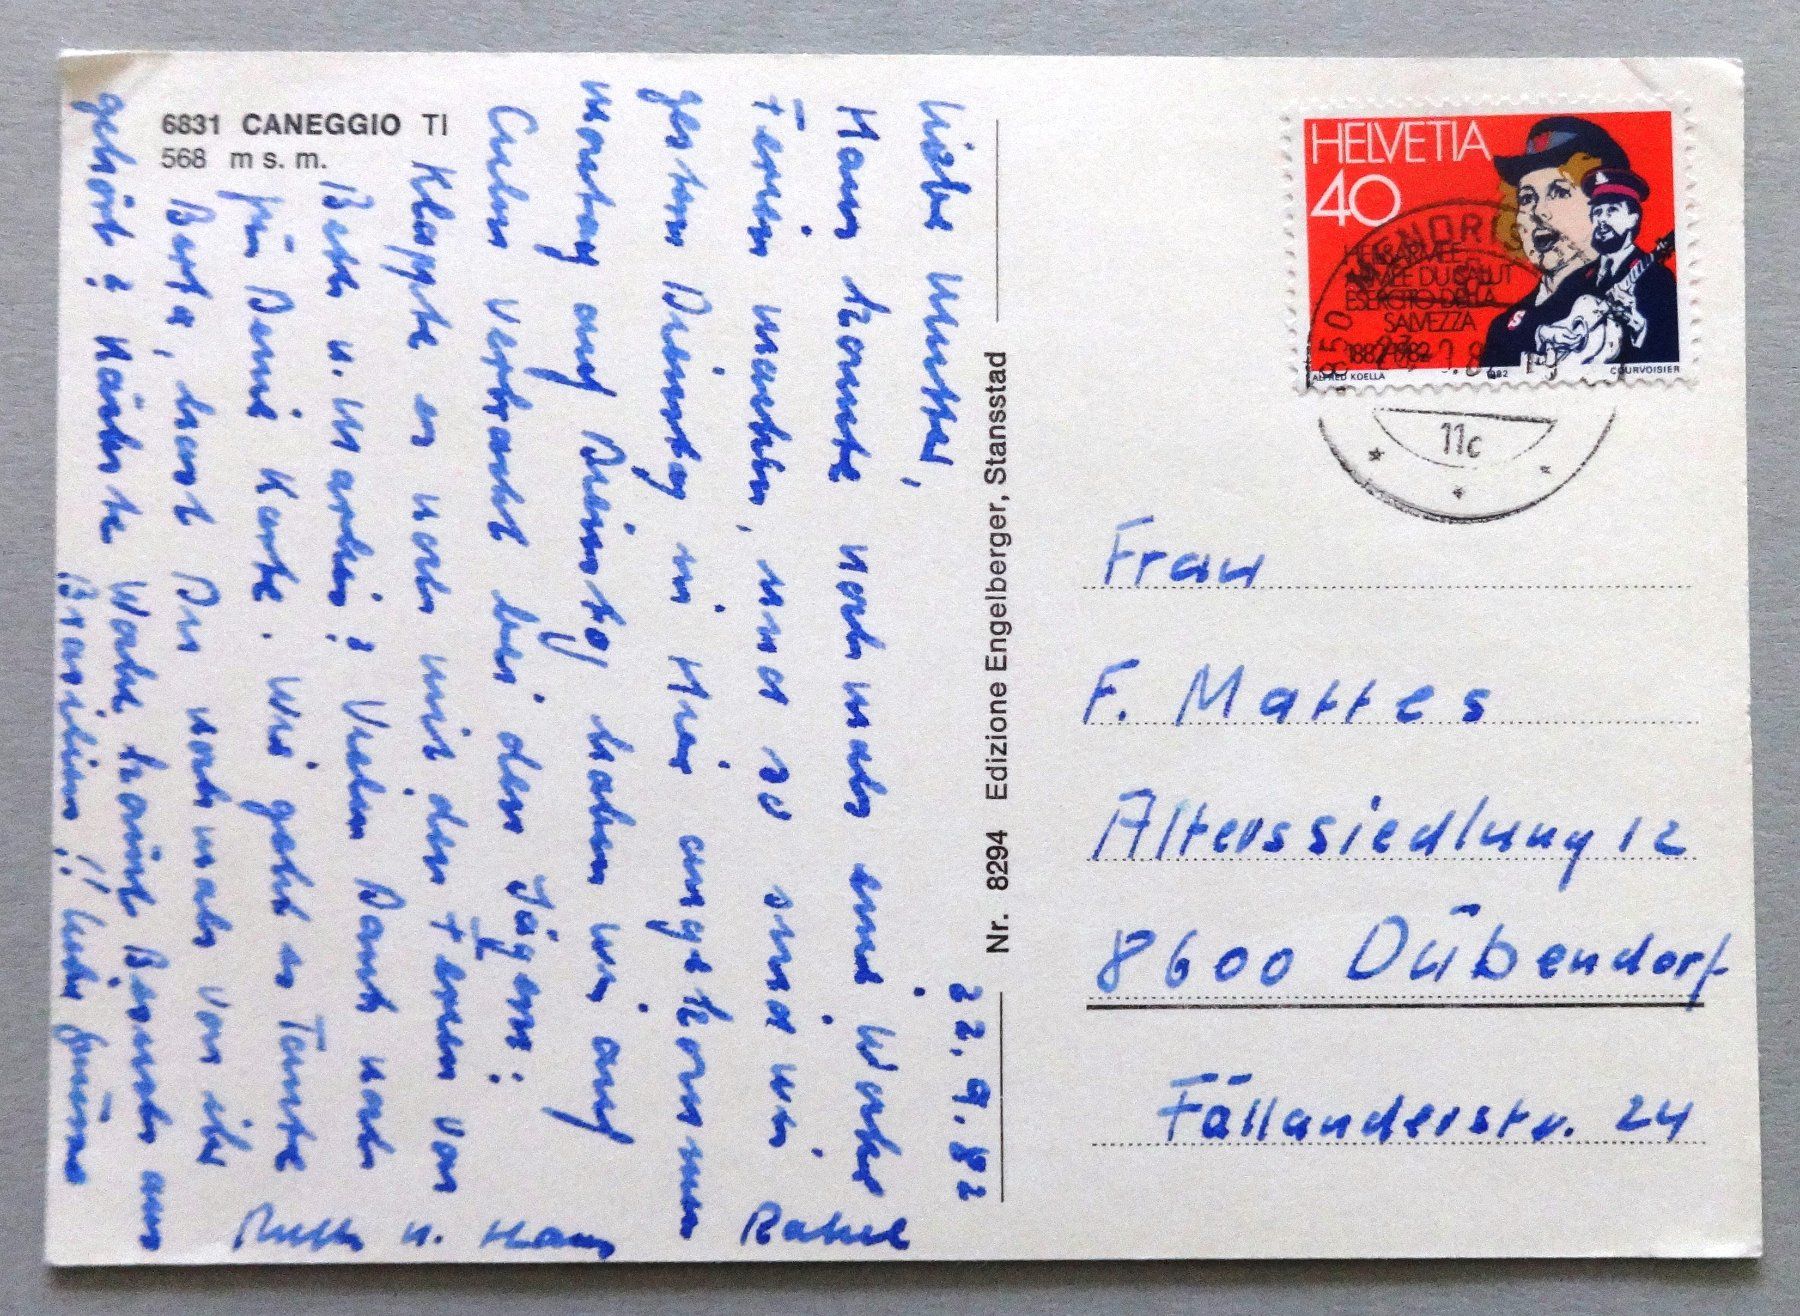 6831 CANEGGIO TI
568 m s. m.
22.9.82
Liebe Mutter,
Hans konnte nochmals eine Woche
Ferien machen, und so sind wir
gestern Dienstag wieder hier angekommen
montag auf Dienstag haben wir auf
verbracht bei den Jägern:
Klappte es noch mit den Ferien von
Beth u. Martin? Vielen Dank noch
für Deine Karte. Wie geht es Tante
Berta, hast Du nochmals von ihr
gehört? Nächste Woche kommt Besuch aus
Brasilien!! Liebe Grüsse
Ruth u. Hans Rahel
Nr. 8294 Edizione Engelberger, Stansstad
HELVETIA
40
HEILSARMEE
ARMÉE DU SALUT
ESERCITO DELLA
SALVEZZA
1882-1982
ALFRED KOELLA 1982 COURVOISIER
6850 MENDRISIO
11c
Frau
F. Mattes
Alterssiedlung 12
8600 Dübendorf
Fällanderstr. 24